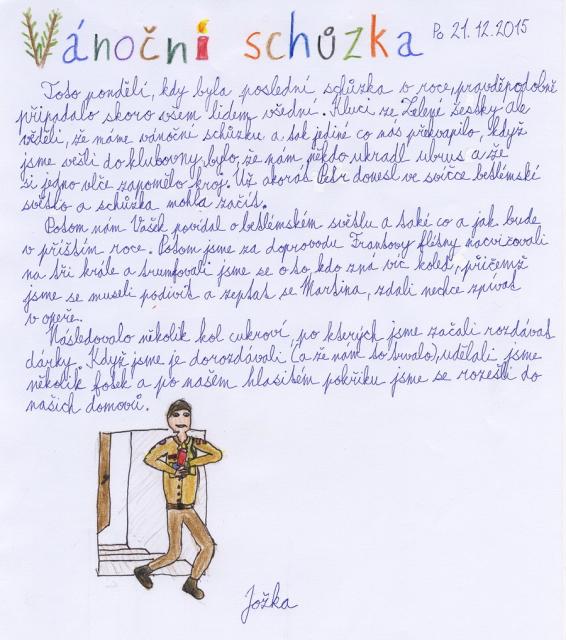 Vánoční schůzka Po 21.12.2015
Toto pondělí, kdy byla poslední schůzka v roce, pravděpodobně
připadalo skoro všem lidem všední. Kluci ze Zelené šestky ale
věděli, že máme vánoční schůzku a tak jediné co nás překvapilo, když
jsme vešli do klubovny, bylo, že nám někdo ukradl ubrus a že
si jedno vlče zapomělo kroj. Už akorát Petr donesl ve svíčce betlémské
světlo a schůzka mohla začít.
Potom nám Vašek povídal o betlémském světlu a také co a jak bude
v příštím roce. Potom jsme za doprovodu Frantovy flétny nacvičovali
na tři krále a trumfovali jsme se o to, kdo zná víc koled, přičemž
jsme se museli podivit a zeptat se Martina, zdali nechce zpívat
v opeře.
Následovalo několik kol cukroví, po kterých jsme začali rozdávat
dárky. Když jsme je dorozdávali (a že nám to trvalo), udělali jsme
několik fotek a po našem hlasitém pokřiku jsme se rozešli do
našich domovů.
Jožka